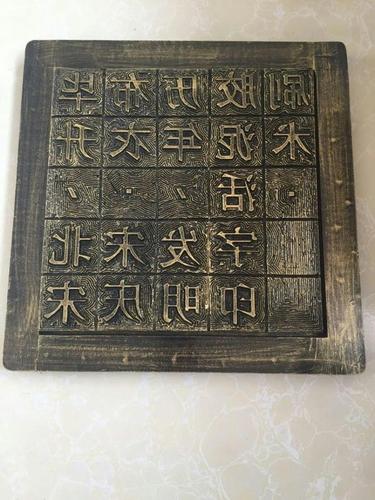 毕升·北宋
布衣·宋庆
历年·发明
胶泥活字印
刷术·